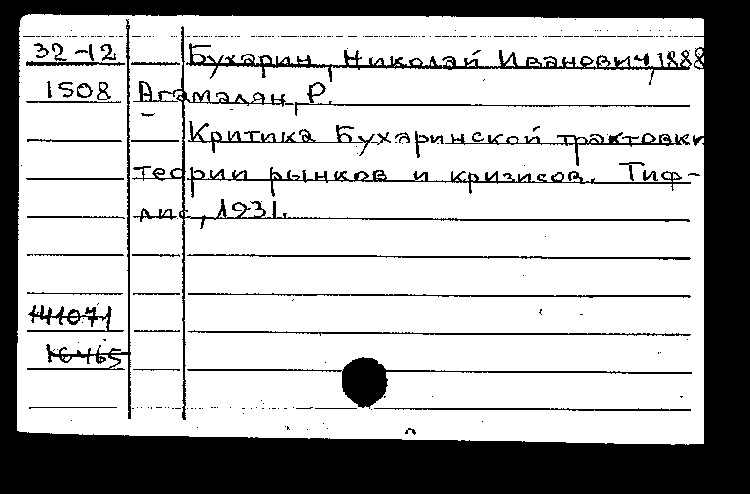 32-12 Бухарин, Николай Иванович, 1888
1508 Агамалян, Р.
Критика Бухаринской трактовки
теории рынков и кризисов. Тиф-
лис, 1931.
141071
16465